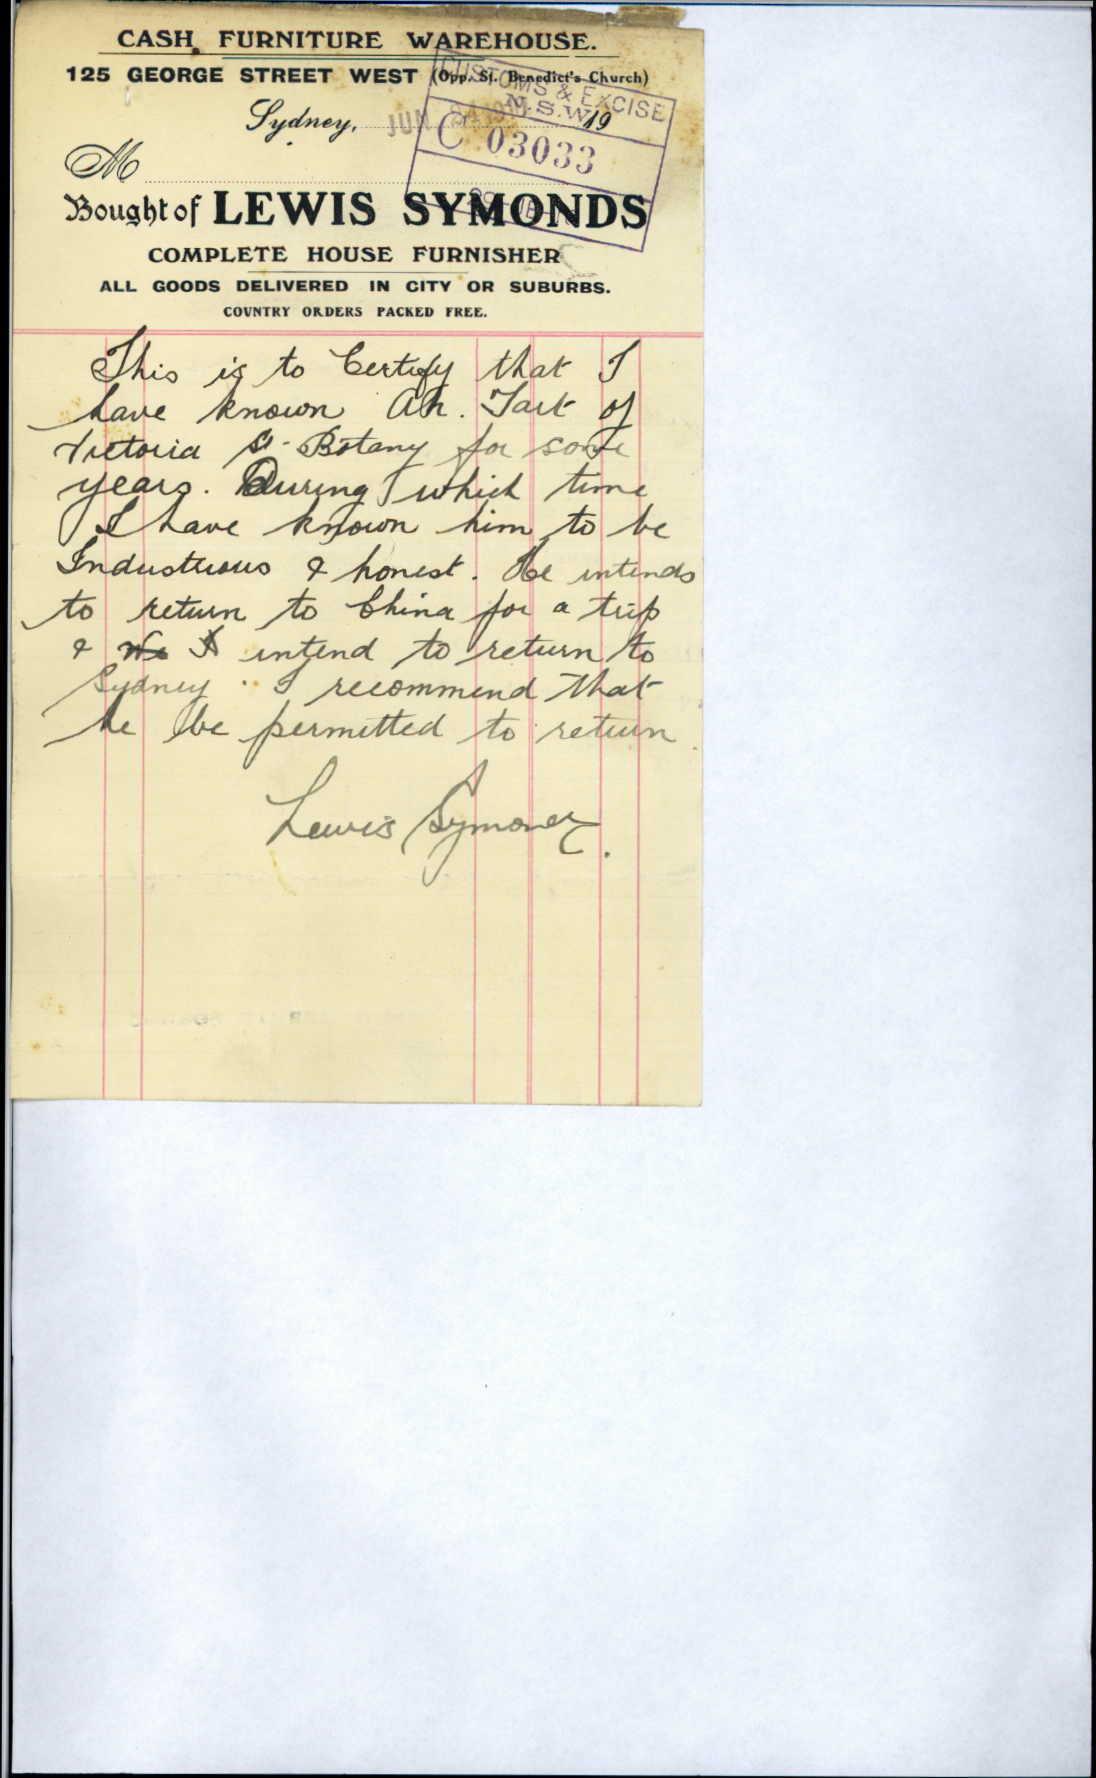 CASH FURNITURE WAREHOUSE.
125 GEORGE STREET WEST (Opp. St. Benedict's Church)
CUSTOMS & EXCISE
N.S.W.
Sydney, 19
JUN
C 03033
M
Bought of LEWIS SYMONDS
COMPLETE HOUSE FURNISHER
ALL GOODS DELIVERED IN CITY OR SUBURBS.
COUNTRY ORDERS PACKED FREE.
This is to Certify that I
have known Ah. Tart of
Victoria St Botany for some
years. During which time
I have known him to be
Industrious & honest. He intends
to return to China for a trip
& intend to return to
Sydney. I recommend that
he be permitted to return.
Lewis Symonds.